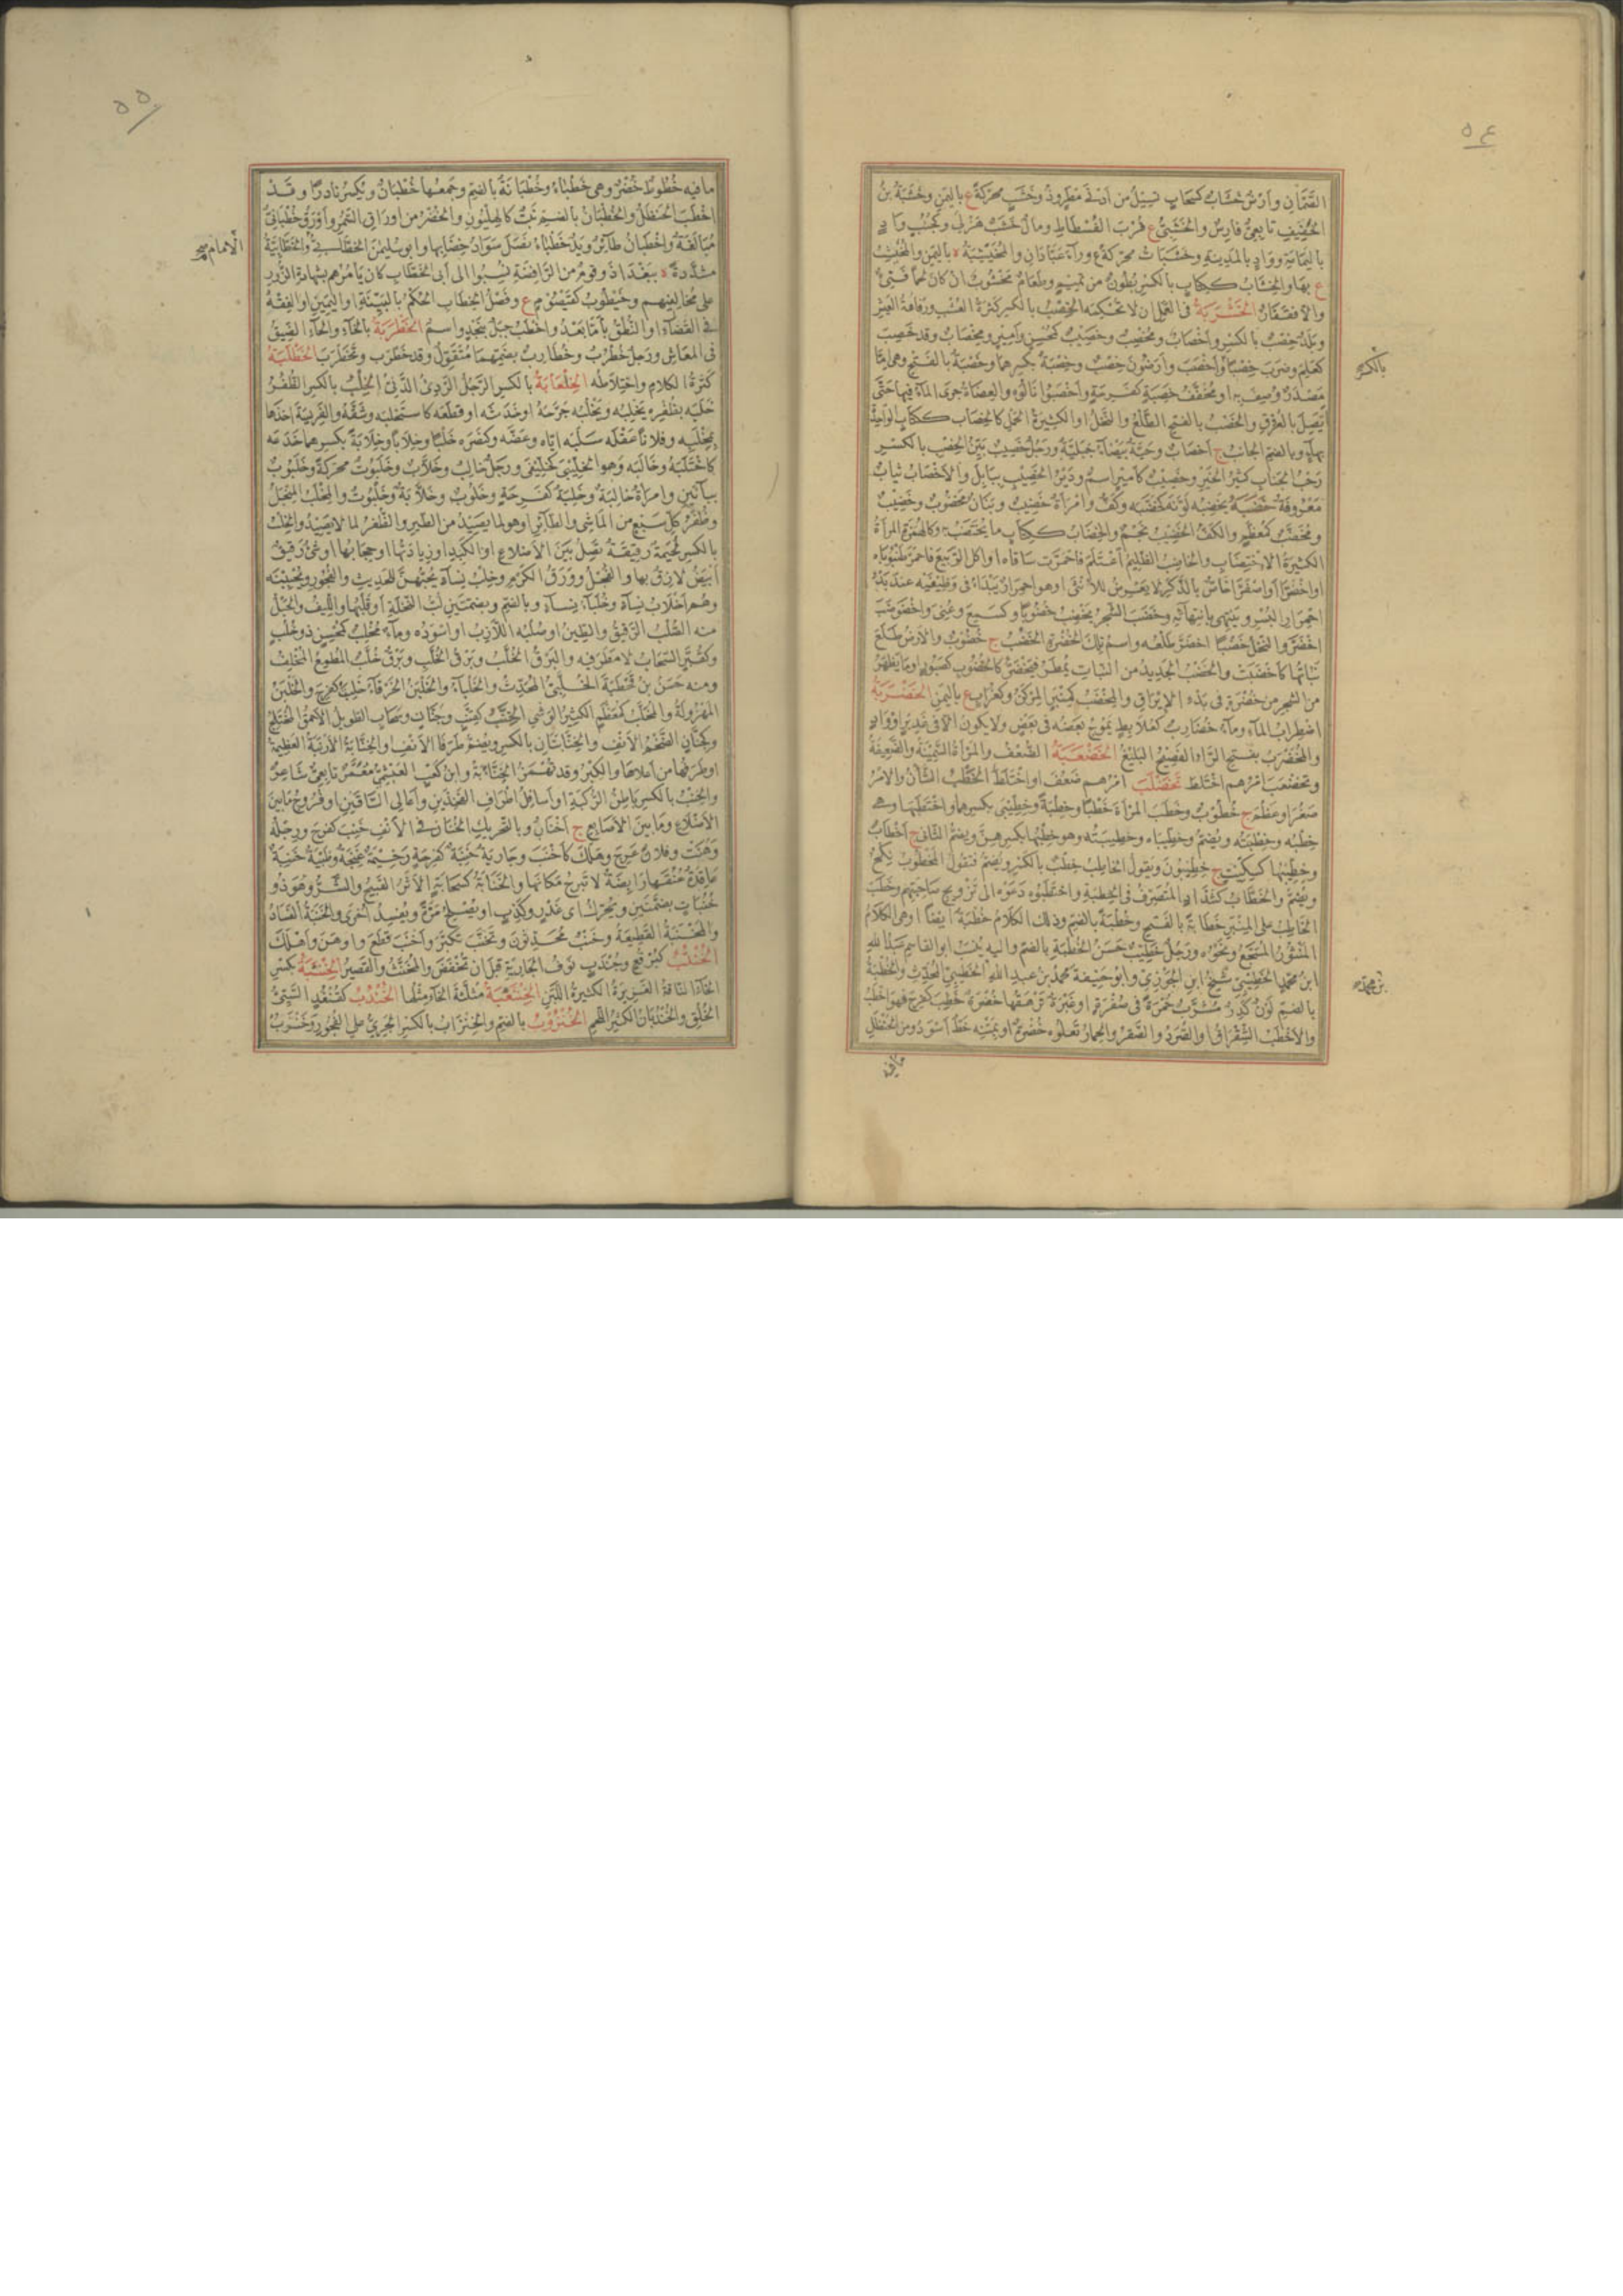 ٥٤
الصَّمَّانِ وأَرْضٌ خَشَابٌ كسَحَابٍ تسيلُ من أدنى مطرٍ وذُو خَشَبٍ محرّكةً ع باليمن وخَشَبَةُ بنُ
الخَفِيفِ تابعيٌّ فارسٌ والخَشَبِيُّ ع قُرْبَ الفُسْطَاطِ ومالٌ خَشَبٌ هَزْلَى وكجُنُبٍ وادٍ
باليمامةِ ووادٍ بالمدينةِ وخَشَبَاتٌ محرّكةً ع وراءَ عَبَّادَانَ والمُخَيْشِبَةُ ه باليمن والمُخَيْشِبُ
ع بها والخِشَابُ ككتابٍ بالكسر بُطُونٌ من تميمٍ وطعامٌ مَخْشُوبٌ ان كان لحمًا فَنِيءٌ
والا فقَفَارٌ الخَشْرَبَةُ في العملِ ان لا تُحْكِمَه الخِصْبُ بالكسر كثرةُ العُشْبِ ورَفَاغَةُ العَيْش
وبلدٌ خِصْبٌ بالكسر وأَخْصَابٌ ومُخْصِبٌ وخَصِيبٌ كمُحْسِنٍ وأميرٍ ومِخْصَابٌ وقد خَصِبَ
بالكسر
كعَلِمَ وضَرَبَ خِصْبًا وأَخْصَبَ وأَرَضُونَ خِصْبٌ وخِصْبَةٌ بكسرهما وخَصْبَةٌ بالفتح وهي اما
مصدرٌ وُصِفَ به او مخفّفُ خَصِبَةٍ كفَرِحَةٍ وأخصبوا نالوه والعِضَاهُ جرى الماءُ فيها حتى
يَصِلَ بالعُرُوقِ والخَصْبُ بالفتح الطَّلْعُ والنخلُ او الكثيرةُ الحَمْلِ كالخِصَابِ ككتابٍ الواحدة
بهاءٍ وبالضم الجانبُ ج أَخْصَابٌ وحيَّةٌ بيضاءُ جبليّةٌ ورجلٌ خَصِيبٌ بيِّنُ الخِصْبِ بالكسر
رَحْبُ الجَنَابِ كثيرُ الخيرِ وخَصِيبٌ كأميرٍ اسمٌ ودَيْرُ الخَصِيبِ ببابلَ والأَخْصَابُ ثيابٌ
معروفةٌ خَضَبَهُ يَخْضِبُه لَوَّنَه كخَضَّبَه وكفٌّ وامرأةٌ خَضِيبٌ وبَنَانٌ مَخْضُوبٌ وخَضِيبٌ
ومُخَضَّبٌ كمعظّمٍ والكفُّ الخَضِيبُ نجمٌ والخِضَابُ ككتابٍ ما يُخْتَضَبُ به وكالهُمَزَةِ المرأةُ
الكثيرةُ الاختضابِ والخاضبُ الظليمُ اغتلم فاحمرّت ساقاه او اكل الربيعَ فاحمرَّ ظُنْبُوباه
او اخضرّا او اصفرّا خاصٌّ بالذكر لا يعرِضُ للأنثى او هو احمرارٌ يبدأُ في وَظِيفَيه عند بَدْءِ
احمرارِ البُسْرِ وينتهي بانتهائه وخَضَبَ الشجرُ يَخْضِبُ خُضُوبًا وكسَمِعَ وعُنِيَ واخْضَوْضَبَ
اخضرَّ والنخلُ خَضْبًا اخضرَّ طَلْعُه واسمُ تلك الخُضْرَةِ الخَضْبُ ج خُضُوبٌ والارضُ طلع
نباتُها كأَخْضَبَتْ والخَضْبُ الجديدُ من النباتِ يُمْطَرُ فيخضرُّ كالخَضُوبِ كصبورٍ او ما يظهرُ
من الشجرِ من خُضْرَةٍ في بدءِ الإيراقِ والمِخْضَبُ كمِنْبَرٍ المِرْكَنُ وكغُرَابٍ ع باليمن الخَضْرَبَةُ
اضطرابُ الماءِ وماءٌ خُضَارِبٌ كعُلَابِطٍ يموجُ بعضُه في بعضٍ ولا يكون الا في غديرٍ او وادٍ
والمُخَضْرَبُ بفتح الراءِ الفصيحُ البليغُ الخَضْعَبَةُ الضعفُ والمرأةُ السمينةُ والضعيفة
وتَخَضْعَبَ امرُهم اختلط تَخَضْلَبَ امرُهم ضَعُفَ او اختلط الخَطْبُ الشأنُ والامرُ
صَغُرَ او عَظُمَ ج خُطُوبٌ وخَطَبَ المرأةَ خَطْبًا وخِطْبَةً وخِطِّيبَى بكسرهما واختطبها وهي
خِطْبُه وخِطْبَتُه ويُضَمُّ وخِطِّيبَاه وخِطِّيبَتُه وهو خِطْبُها بكسرهنّ ويُضَمُّ الثاني ج أَخْطَابٌ
وخِطِّيبُها كسِكِّيتٍ ج خِطِّيبُونَ ويقول الخاطبُ خِطْبٌ بالكسر ويُضَمُّ فيقول المخطوبُ نِكْحٌ
ويُضَمُّ والخَطَّابُ كشدّادٍ المتصرّفُ في الخِطْبَةِ واختطبوه دعَوْه الى تزويج صاحبتهم وخَطَبَ
الخاطبُ على المنبرِ خَطَابةً بالفتح وخُطْبَةً بالضم وذلك الكلامُ خُطْبَةٌ ايضا او هي الكلامُ
المنثورُ المسجّعُ ونحوُه ورجلٌ خَطِيبٌ حسنُ الخُطْبَةِ بالضم واليه نُسِبَ ابو القاسم عبدُ الله
بن محمد
ابنُ محمدٍ الخطيبيُّ شيخُ ابنِ الجوزي وابو حنيفةَ محمدُ بنُ عبد الله الخطيبيُّ المحدّثُ والخُطْبَةُ
بالضم لونٌ كَدِرٌ مُشْرَبٌ حُمْرَةً في صُفْرَةٍ او غُبْرَةٌ تَرْهَقُها خُضْرَةٌ خَطِبَ كفَرِحَ فهو أَخْطَبُ
والأَخْطَبُ الشِّقِرَّاقُ او الصُّرَدُ والصقرُ والحمارُ تعلوه خُضْرَةٌ او بمتنه خطٌّ اسودُ ومن الحنظلِ
ما فيه
٥٥
ما فيه خُطُوطٌ خُضْرٌ وهي خَطْبَاءُ وخُطْبَانَةٌ بالضم وجمعها خُطْبَانٌ ويُكْسَرُ نادرًا وقد
أَخْطَبَ الحنظلُ والخُطْبَانُ بالضم نبتٌ كالهِلْيَوْنِ والخُضْرُ من اوراقِ السَّمُرِ وأَوْرَقُ خُطْبَانِيٌّ
مبالغةٌ وأَخْطَبَانُ طائرٌ ويدٌ خَطْبَاءُ نَصَلَ سَوادُ خِضَابِها وابو سليمنَ الخَطَّابِيُّ والخَطَّابِيَّةُ
الامام
مشدّدةً ه ببغداذ وقومٌ من الرافضةِ نُسِبوا الى ابي الخَطَّابِ كان يأمرهم بشهادةِ الزورِ
على مخالفيهم وخَيْطُوبٌ كقَيْصُومٍ ع وفصلُ الخِطابِ الحكمُ بالبيّنةِ او اليمينِ او الفقهُ
في القضاءِ او النطقُ بأمّا بعدُ وأَخْطَبُ جبلٌ بنجدٍ واسمٌ الخَطْرَبَةُ بالخاءِ والحاءِ الضيقُ
في المعاشِ ورجلٌ خُطْرُبٌ وخُطَارِبٌ بضمهما متقوِّلٌ وقد خَطْرَبَ وتَخَطْرَبَ الخَطْلَبَةُ
كثرةُ الكلامِ واختلاطُه الخِلْعَابَةُ بالكسر الرجلُ الرديءُ الدنيءُ الخِلْبُ بالكسر الظُّفُرُ
خَلَبَه بظُفُرِه يَخْلِبُه ويَخْلُبُه جرحه او خدشه او قطعه كاستخلبه وشقّه والفريسةَ اخذها
بمِخْلَبِه وفلانًا عقلَه سلبه ايّاه وعضّه وكنَصَرَه خَلْبًا وخِلَابًا وخِلَابَةً بكسرهما خدعه
كاختلبه وخالبه وهو الخِلِّيبَى كخِلِّيفَى ورجلٌ خالبٌ وخَلَّابٌ وخَلَبُوتٌ محرّكةً وخَلَبُوبٌ
بباءين وامرأةٌ خالبةٌ وخَلِبَةٌ كفَرِحَةٍ وخَلُوبٌ وخَلَّابَةٌ وخَلَبُوتٌ والمِخْلَبُ المِنْجَلُ
وظُفُرُ كلِّ سَبُعٍ من الماشي والطائرِ او هو لما يصيدُ من الطيرِ والظفرُ لما لا يصيدُ والخِلْبُ
بالكسر لُحَيْمَةٌ رقيقةٌ تصلُ بين الأضلاعِ او الكَبِدُ او زيادتُها او حجابُها او شيءٌ رقيقٌ
ابيضُ لازقٌ بها والفُجْلُ وورقُ الكَرْمِ وخِلْبُ نساءٍ يحبّهنّ للحديثِ والفجورِ ويُحْبِبْنَه
وهم أَخْلَابُ نساءٍ وخُلَبَاءُ نساءٍ وبالضم وبضمّتين لُبُّ النخلةِ او قلبُها والليفُ والحبلُ
منه الصُّلْبُ الرقيقُ والطينُ او صُلْبُه اللازبُ او اسودُه وماءٌ مُخْلِبٌ كمُحْسِنٍ ذو خُلْبٍ
وكقُبَّرٍ السحابُ لا مطرَ فيه والبرقُ الخُلَّبُ وبرقُ الخُلَّبِ وبرقٌ خُلَّبٌ المُطْمِعُ المُخْلِفُ
ومنه حسنُ بنُ قَحْطَبَةَ الخُلَّبِيُّ المحدّثُ والخَلْبَاءُ والخَلْبَنُ الخَرْقَاءُ خَلِبَ كفَرِحَ والخَلْبَنُ
المهزولةُ والمُخَلَّبُ كمعظّمٍ الكثيرُ الوشي الخِنَّبُ كقِنَّبٍ وجِنَّانٍ وسَحَابٍ الطويلُ الاحمقُ المختلجُ
وكجِنَّانٍ الضخمُ الانفِ والخِنَّابتانِ بالكسر ويُضَمُّ طرفا الانفِ او الخِنَّابةُ الأرنبةُ العظيمة
او طرفُها من اعلاها والكِبْرُ وقد تُهْمَزُ الخِنَّأْبَةُ وابنُ كعبٍ العَبْشَمِيُّ مُعَمَّرٌ تابعيٌّ شاعرٌ
والخِنْبُ بالكسر باطنُ الركبةِ او اسافلُ اطرافِ الفخذينِ واعالي الساقينِ او فُرُوجُ ما بين
الاضلاعِ وما بين الاصابعِ ج أَخْنَابٌ وبالتحريك الخُنَانُ في الانفِ خَنِبَ كفَرِحَ ورِجْلُهُ
وَهَنَتْ وفلانٌ عَرِجَ وهَلَكَ كأَخْنَبَ وجاريةٌ خَنِبَةٌ كفَرِحَةٍ رخيمةٌ غَنِجَةٌ وظبيةٌ خَنِبَةٌ
عاقدةٌ عُنُقَها رابضةٌ لا تبرحُ مكانَها والخَنَابَةُ كسحابةٍ الاثرُ القبيحُ والشرُّ وهو ذو
خُنُبَاتٍ بضمّتين ويُحَرَّكُ اي غَدْرٍ وكَذِبٍ او يُصْلِحُ مرّةً ويُفْسِدُ اخرى والخَنْبَةُ الفسادُ
والمَخْنَبَةُ القطيعةُ وخَنْبٌ محدّثونَ وتَخَنَّبَ تكبّرَ وأَخْنَبَ قطعَ واوهنَ واهلكَ
الخُنْثُبُ كبُرْقُعٍ وجُنْدَبٍ نَوْفُ الجاريةِ قبل ان تُخْفَضَ والمخنّثُ والقصيرُ الخِنْثَبَةُ بكسر
الخاءِ الناقةُ الغزيرةُ الكثيرةُ اللبنِ الخنثعبةُ مثلّثةَ الخاءِ مثلُها الخُنْدُبُ كقُنْفُدٍ السيّئُ
الخُلُقِ والخُنْدُبَانُ الكثيرُ اللحمِ الخُنْزُوبُ بالضم والخِنْزَابُ بالكسر الجريءُ على الفجورِ وخَنْزَبٌ